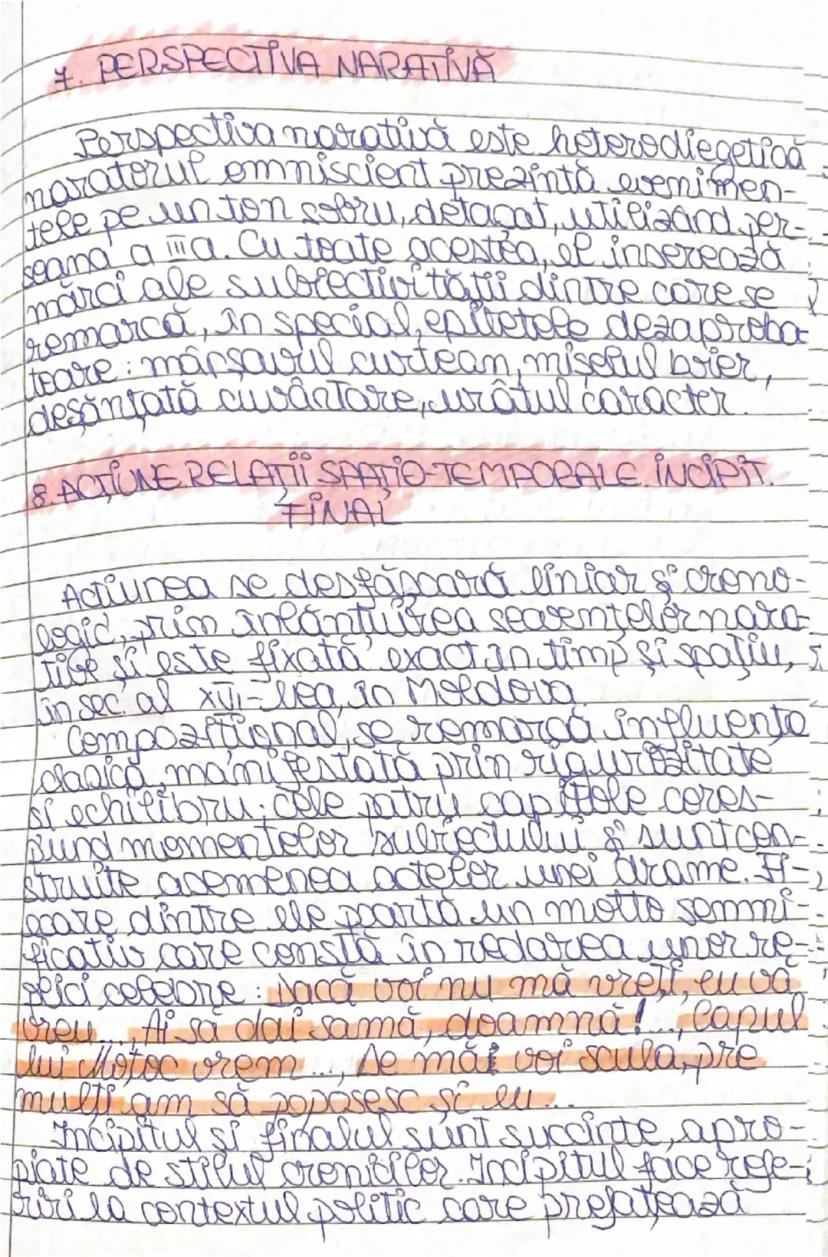 7. PERSPECTIVA NARATIVĂ
Perspectiva narativă este heterodiegetică
naratorul omniscient prezintă evenimen-
tele pe un ton sobru, detașat, utilizând per-
seana a III a. Cu toate acestea, el inserează
mărci ale subiectivității dintre care se
remarcă, în special, epitetele dezaproba-
toare: mârșavul curtean, mișelul boier,
deșănțată cuvântare, urâtul caracter.
8. ACȚIUNE. RELAȚII SPAȚIO-TEMPORALE. INCIPIT.
FINAL
Acțiunea se desfășoară liniar și crono-
logic, prin înlănțuirea secvențelor nara-
tive și este fixată exact în timp și spațiu,
în sec. al XVI-lea, în Moldova
Compozițional, se remarcă influența
clasică manifestată prin rigurozitate
și echilibru; cele patru capitole cores-
pund momentelor subiectului și sunt con-
struite asemenea actelor unei drame. Fi-
ecare dintre ele poartă un motto semni-
ficativ care constă în redarea unor re-
plici celebre: Dacă voi nu mă vreți, eu vă
vreu..., Ai să dai samă, doamnă!..., Capul
lui Moțoc vrem..., De mă voi scula, pre
mulți am să popesesc și eu...
Incipitul și finalul sunt succinte, apro-
piate de stilul cronicilor. Incipitul face refe-
riri la contextul politic care prefațează